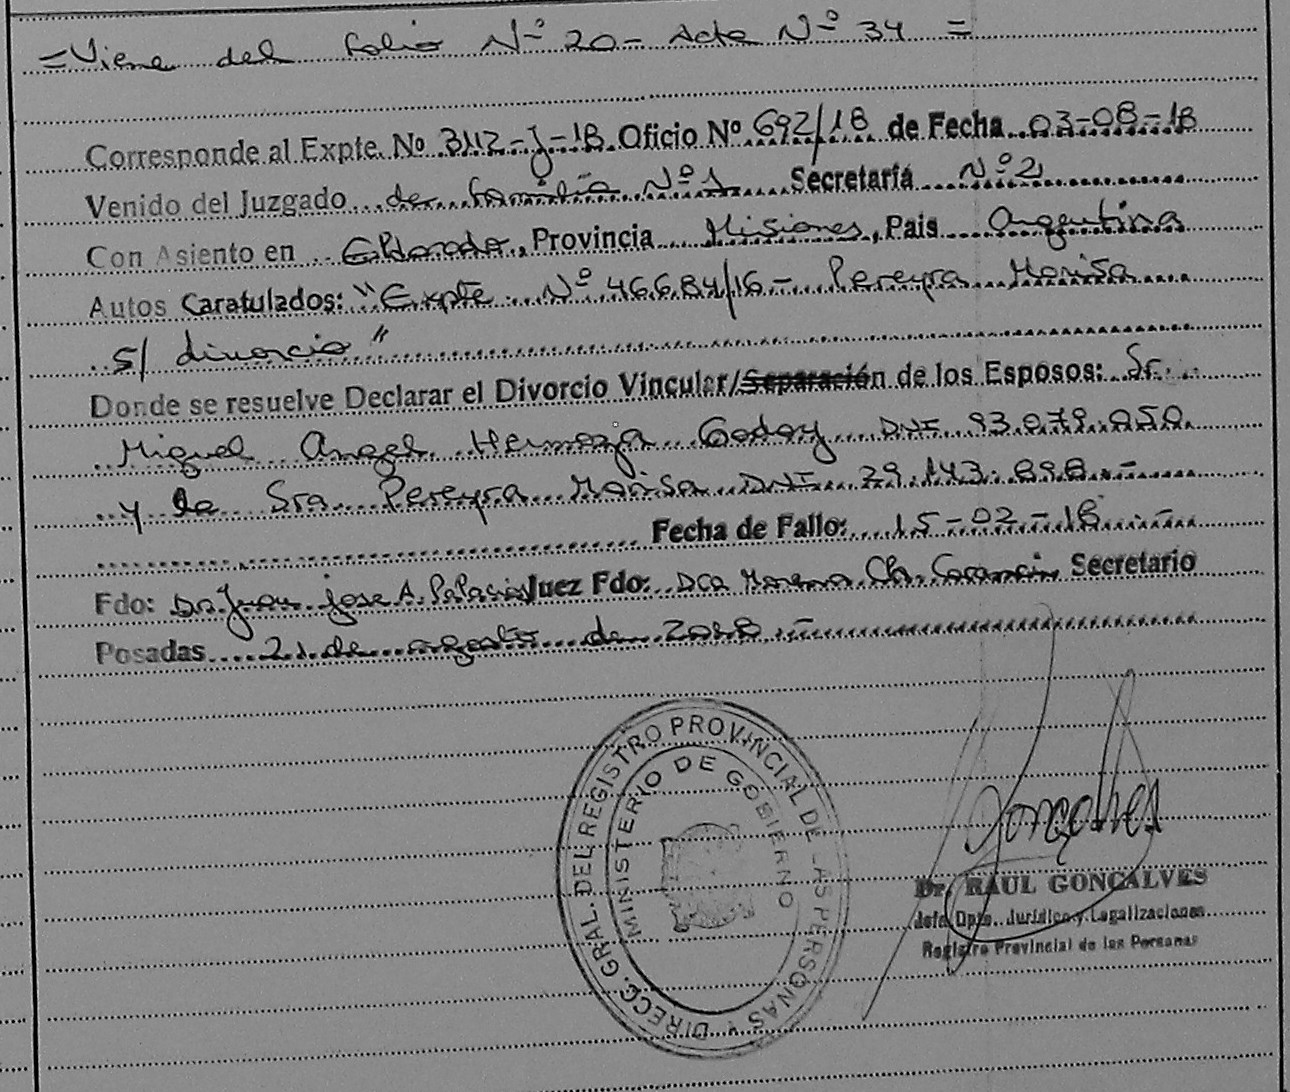 =Viene del folio Nº 20- Acta Nº 34 =
Corresponde al Expte. Nº 3112-J-18 Oficio Nº 692/18 de Fecha 03-08-18
Venido del Juzgado de familia Nº 1 Secretaría Nº 2
Con Asiento en Eldorado, Provincia Misiones, Pais Argentina
Autos Caratulados: "Expte Nº 46684/16- Pereyra Marisa
s/ divorcio"
Donde se resuelve Declarar el Divorcio Vincular/Separación de los Esposos: Sr.
Miguel Angel Hermoza Godoy DNI 93.079.050
y la Sra. Pereyra Marisa DNI 29.143.898.-
Fecha de Fallo: 15-02-18.-
Fdo: Dr Juan Jose A. Palacio Juez Fdo: Dra Morena Ch. Secretario
Posadas 21 de agosto de 2018.-
DIRECC. GRAL. DEL REGISTRO PROVINCIAL DE LAS PERSONAS
MINISTERIO DE GOBIERNO
Gonçalves
Dr. RAUL GONCALVES
Jefe Dpto. Jurídico y Legalizaciones
Registro Provincial de las Personas